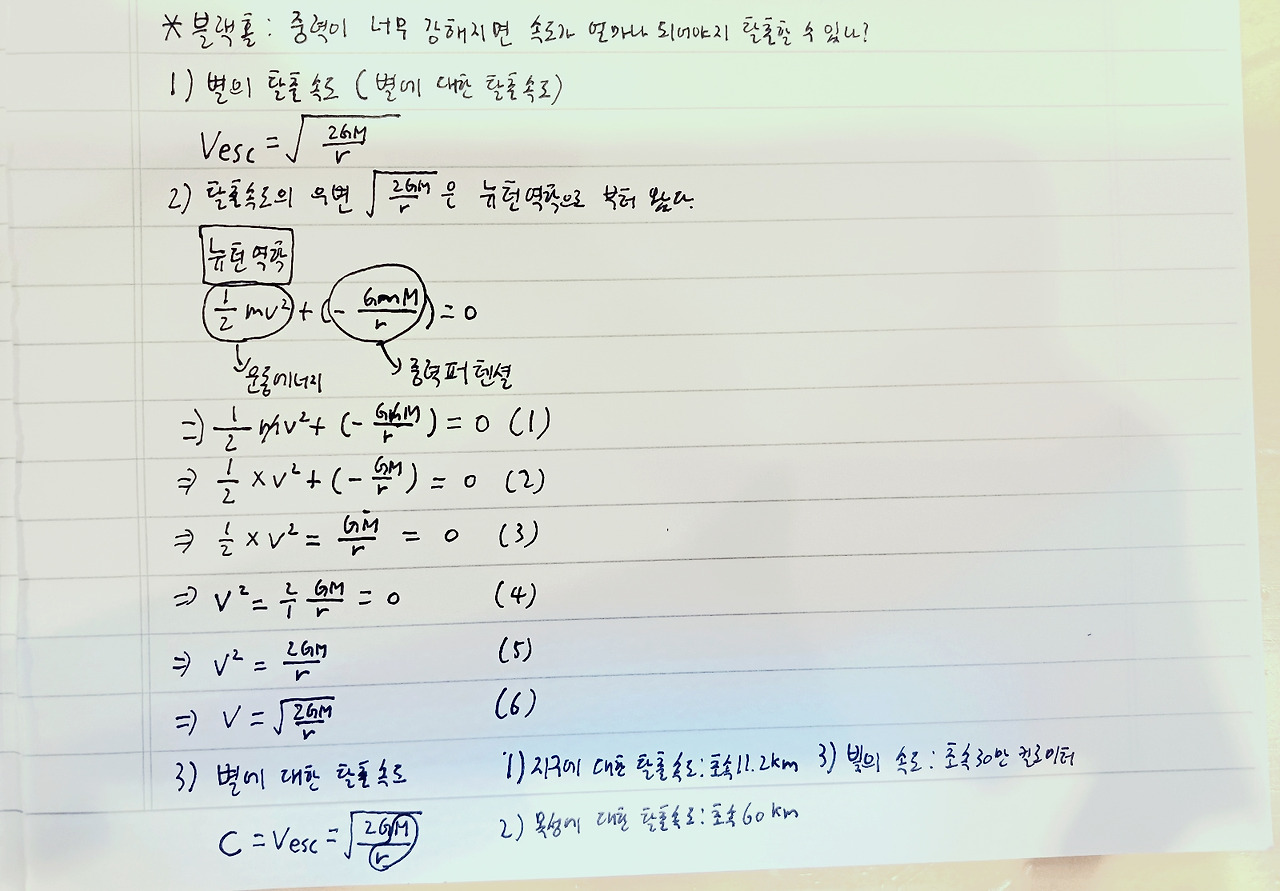 * 블랙홀 : 중력이 너무 강해지면 속도가 얼마나 되어야지 탈출할 수 있나?
1) 별의 탈출속도 (별에 대한 탈출속도)
Vesc = √(2GM/r)
2) 탈출속도의 우변 √(2GM/r) 은 뉴턴역학으로 부터 왔다.
뉴턴역학
1/2 mv² + (- GmM/r) = 0
운동에너지 중력퍼텐셜
⇒ 1/2 mv² + (- GmM/r) = 0 (1)
⇒ 1/2 × v² + (- GM/r) = 0 (2)
⇒ 1/2 × v² = GM/r = 0 (3)
⇒ v² = 2/1 GM/r = 0 (4)
⇒ v² = 2GM/r (5)
⇒ V = √(2GM/r) (6)
3) 별에 대한 탈출속도
C = Vesc = √(2GM/r)
1) 지구에 대한 탈출속도 : 초속 11.2km 3) 빛의 속도 : 초속 30만 킬로미터
2) 목성에 대한 탈출속도 : 초속 60km